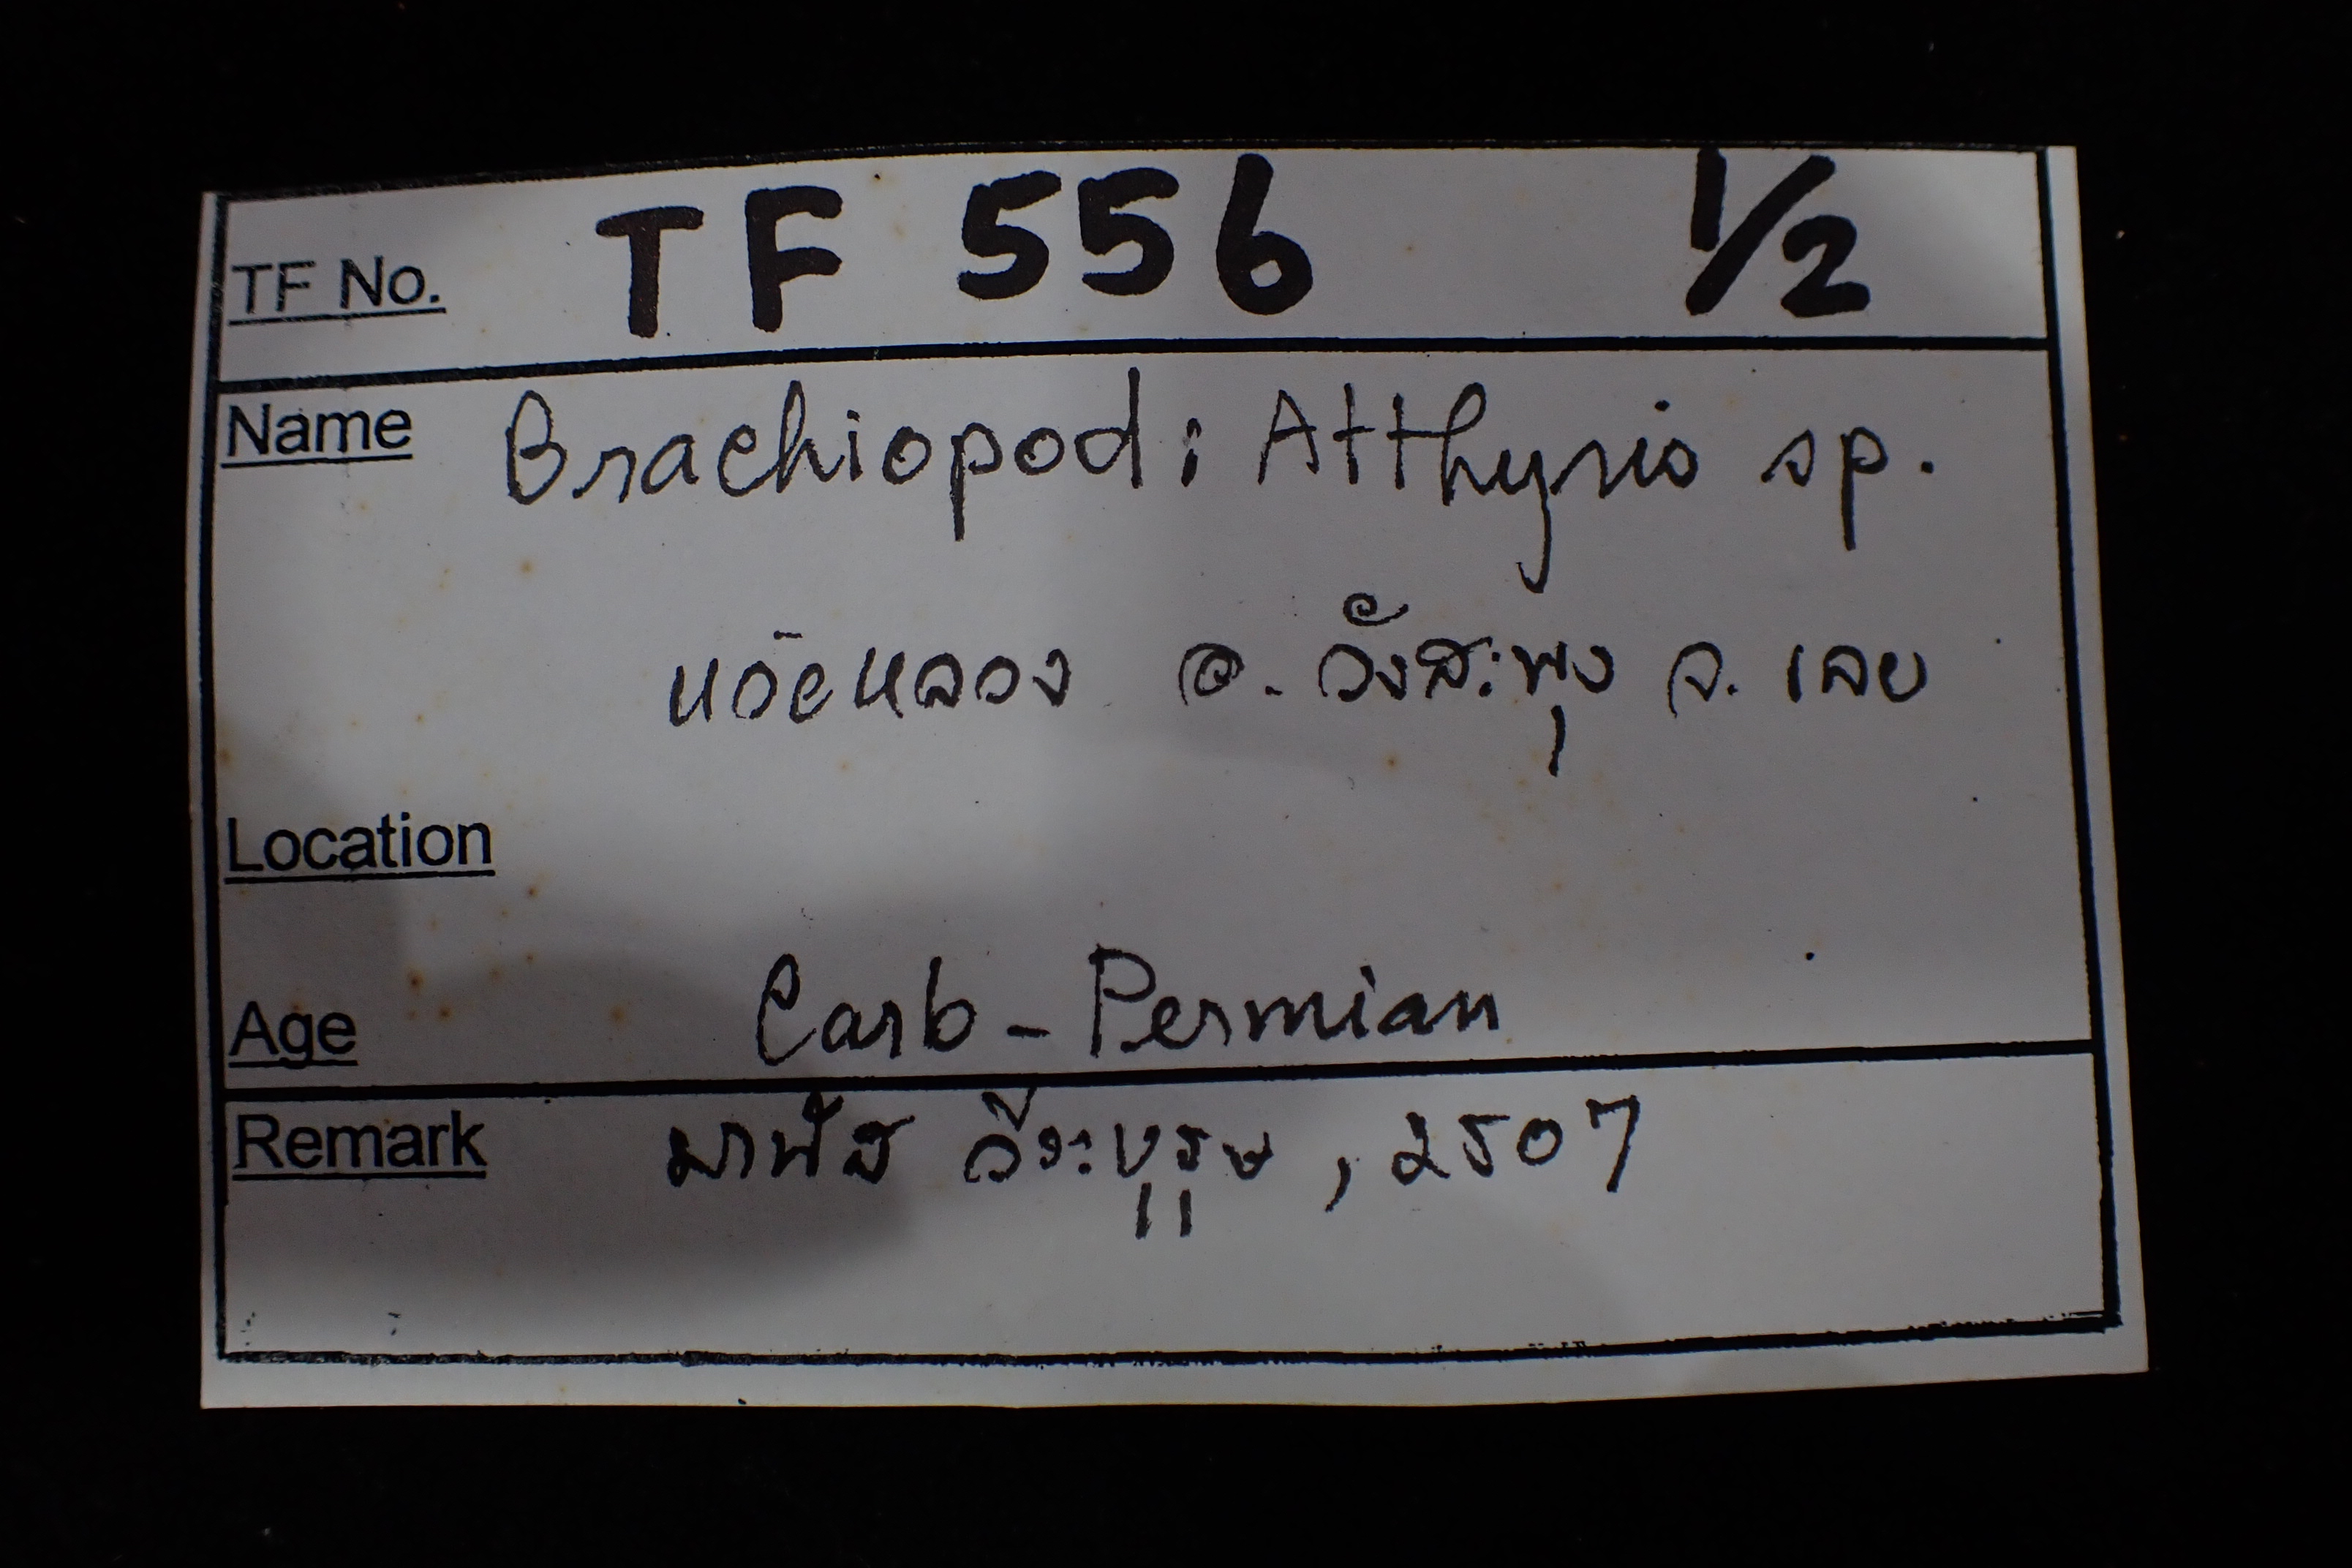 TF No. TF 556 1/2
Name Brachiopod: Atthyris sp.
อ. วังสะพุง จ. เลย
Location
Age Carb - Permian
Remark มานัส วีระบุรุษ, 2507